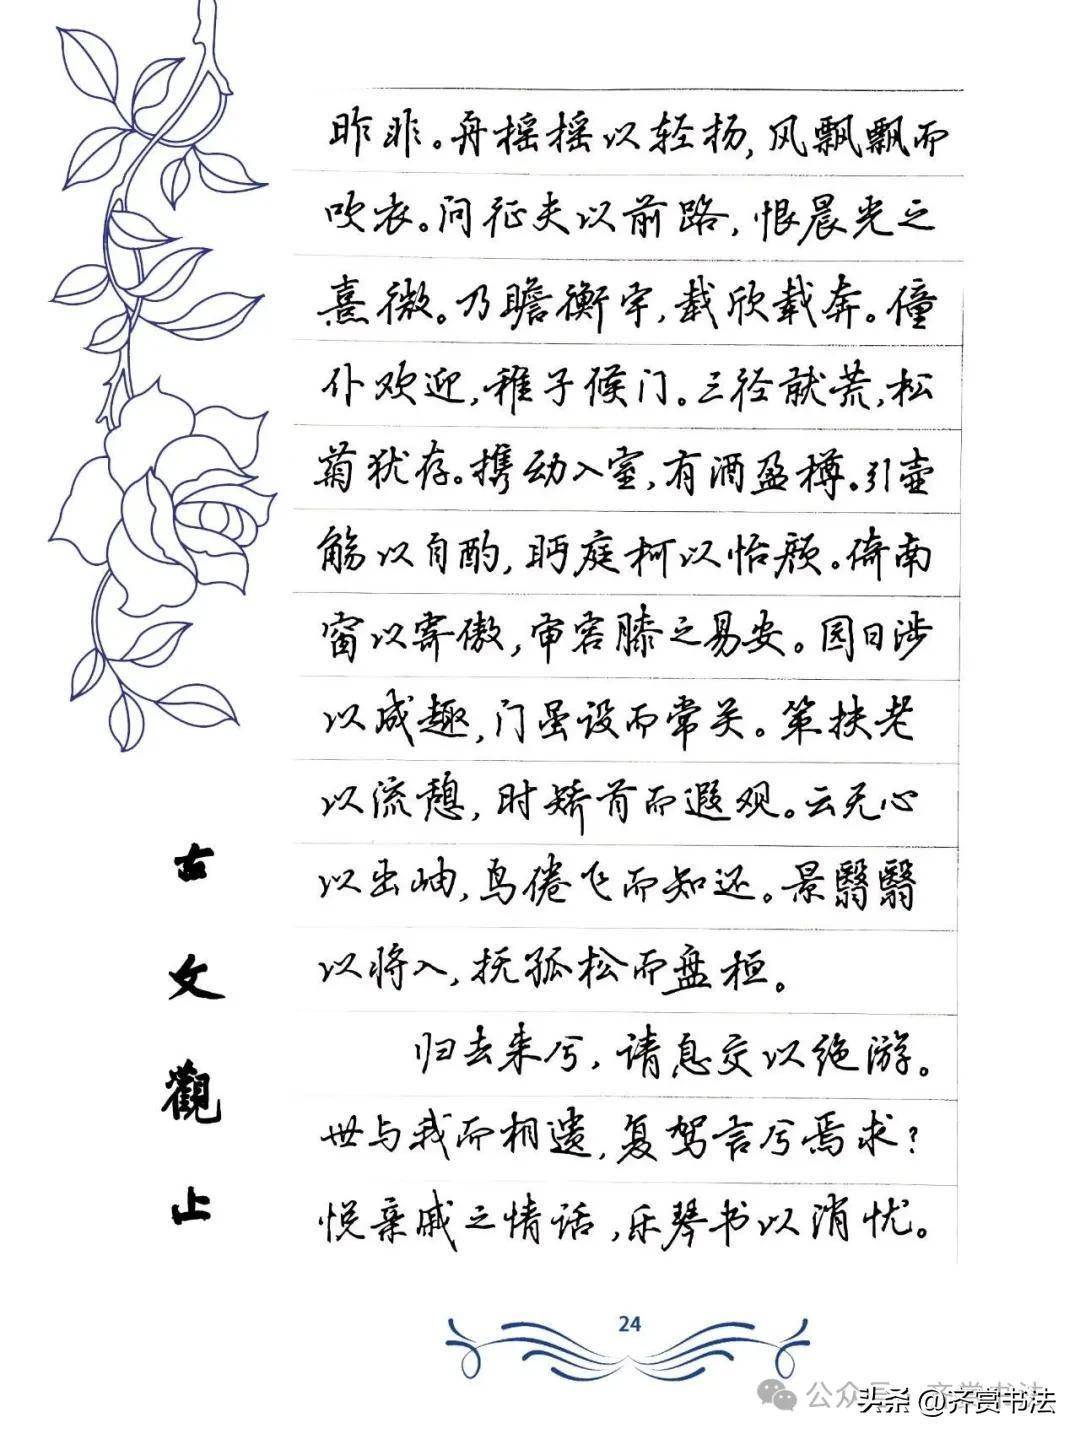 昨非。舟摇摇以轻扬，风飘飘而
吹衣。问征夫以前路，恨晨光之
熹微。乃瞻衡宇，载欣载奔。僮
仆欢迎，稚子候门。三径就荒，松
菊犹存。携幼入室，有酒盈樽。引壶
觞以自酌，眄庭柯以怡颜。倚南
窗以寄傲，审容膝之易安。园日涉
以成趣，门虽设而常关。策扶老
以流憩，时矫首而遐观。云无心
以出岫，鸟倦飞而知还。景翳翳
以将入，抚孤松而盘桓。
归去来兮，请息交以绝游。
世与我而相遗，复驾言兮焉求？
悦亲戚之情话，乐琴书以消忧。
古文觀止
24
公众号
头条 @齐赏书法